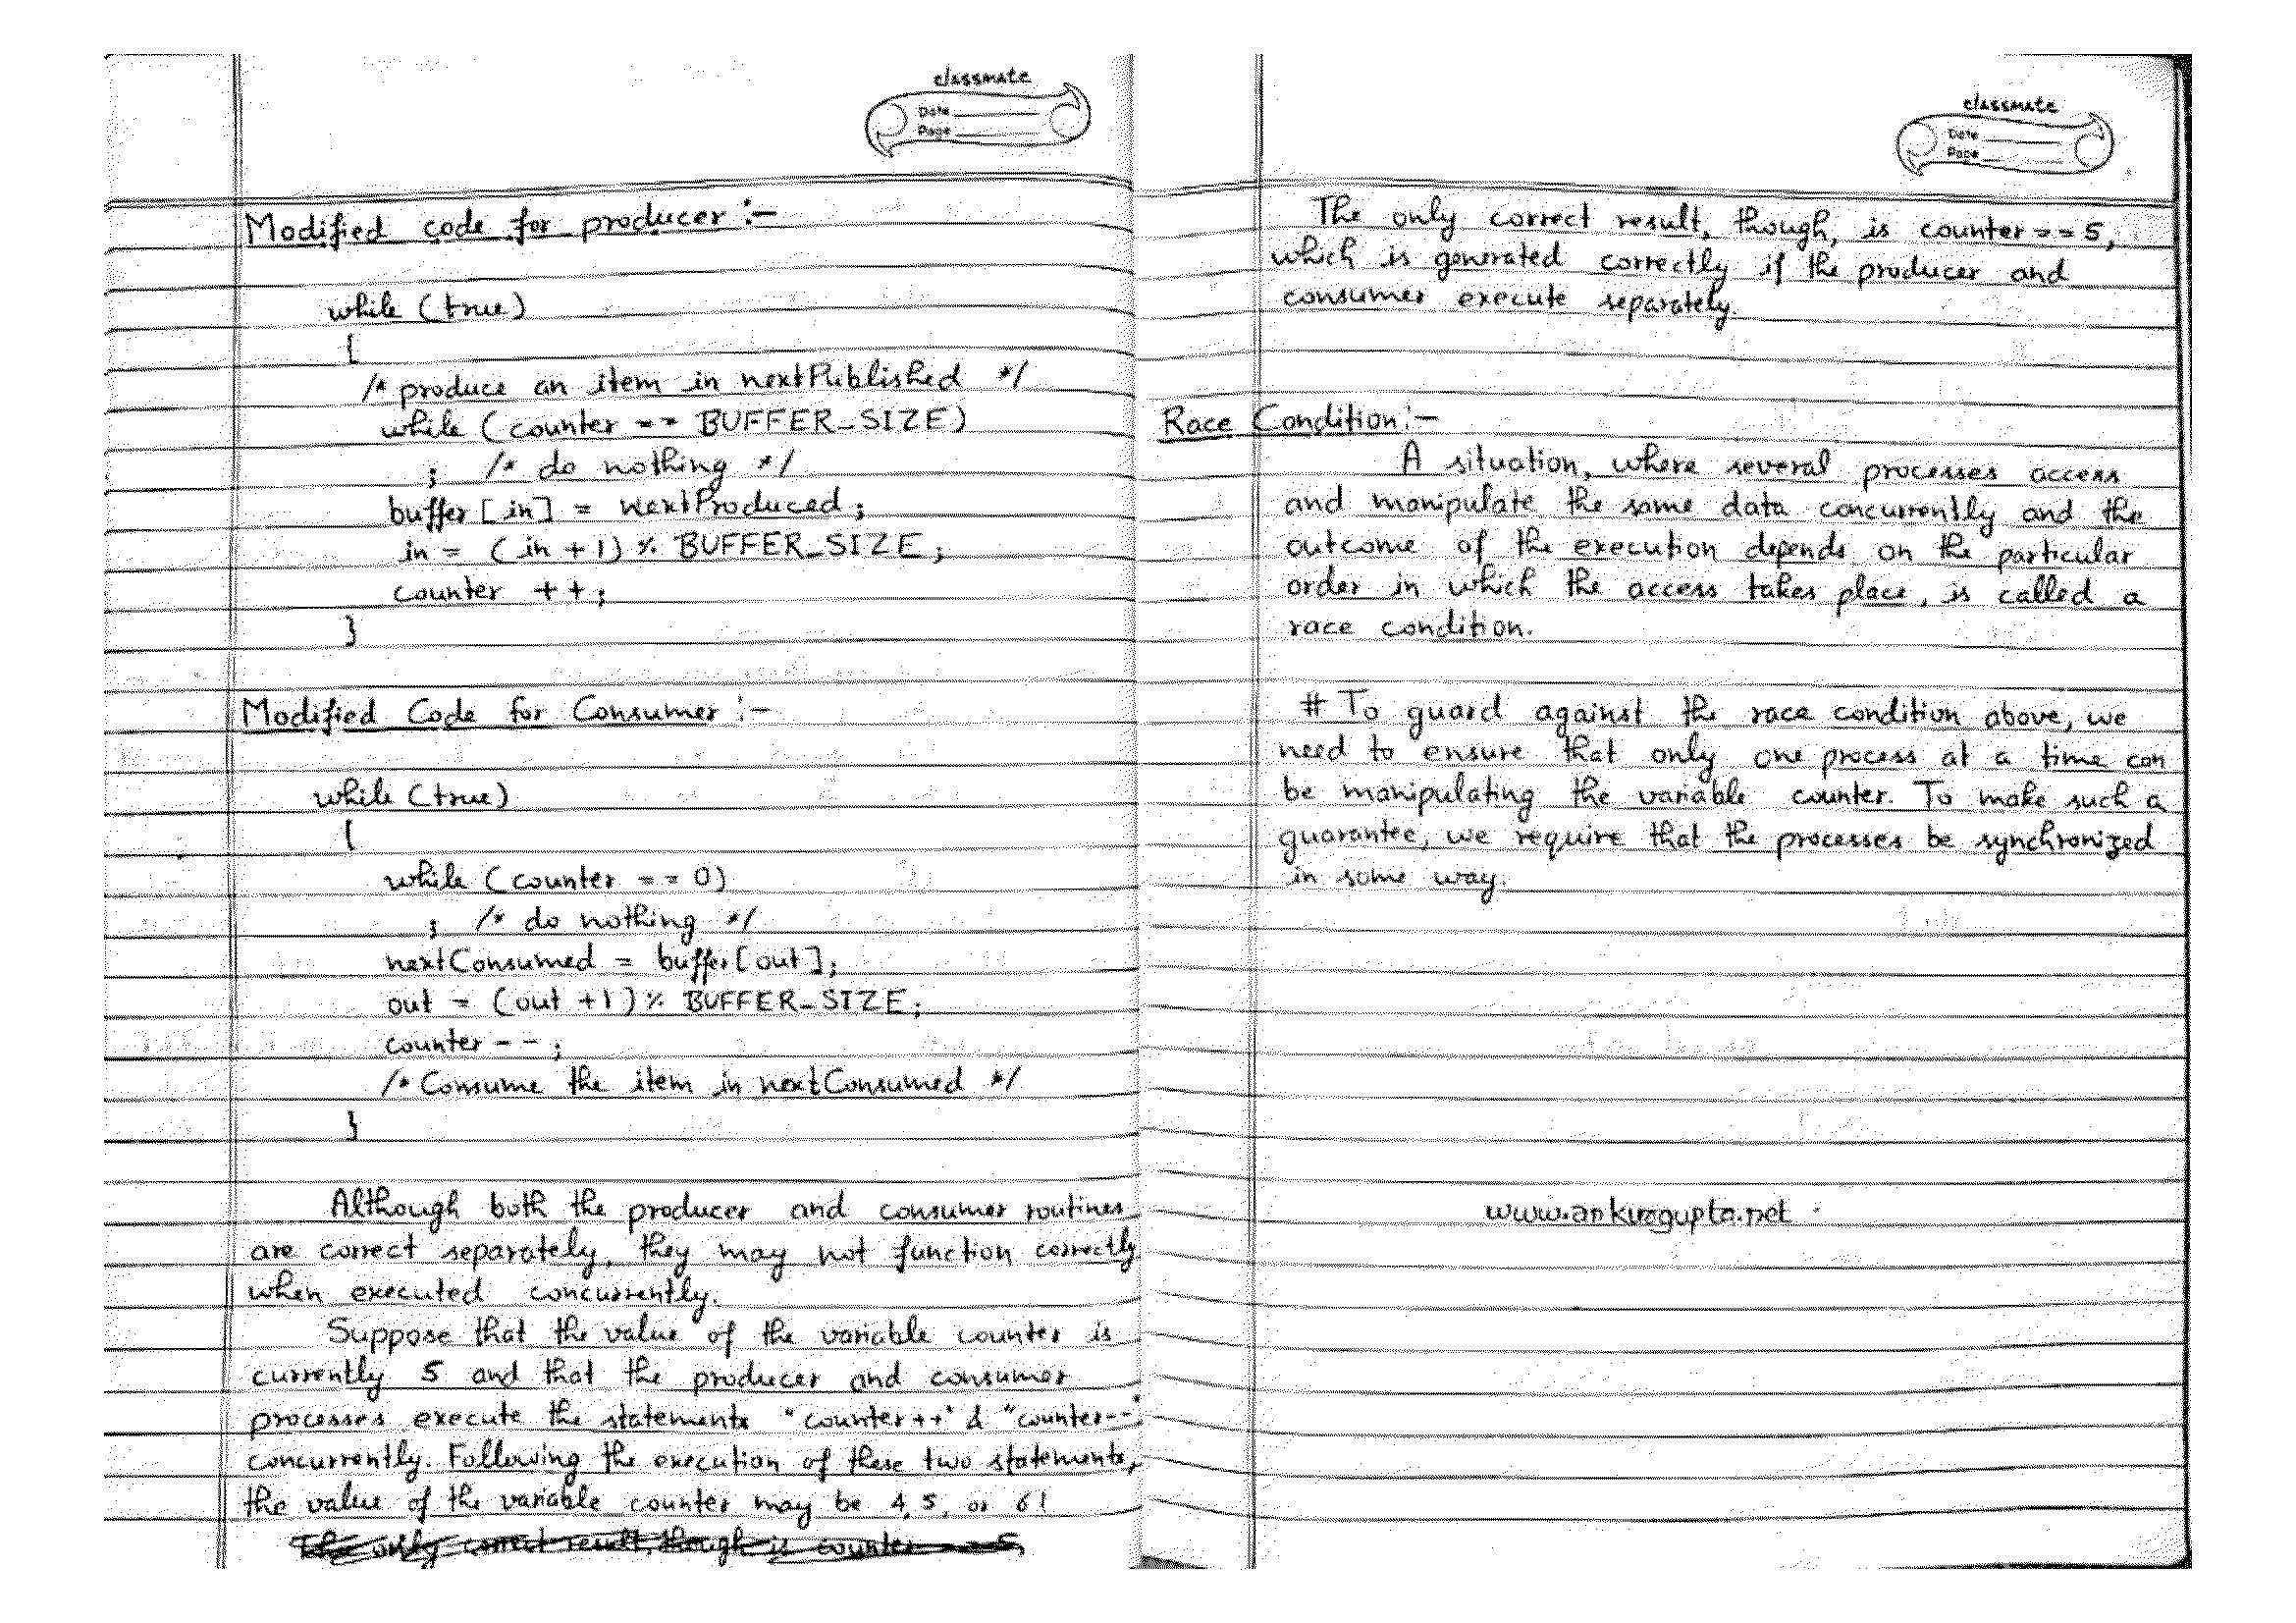 classmate
Date
Page
Modified code for producer :-
while (true)
{
/* produce an item in nextPublished */
while (counter == BUFFER_SIZE)
; /* do nothing */
buffer [in] = nextProduced;
in = (in +1) % BUFFER_SIZE;
counter ++;
}
Modified Code for Consumer :-
while (true)
{
while (counter == 0)
; /* do nothing */
nextConsumed = buffer[out];
out = (out +1) % BUFFER_SIZE;
counter --;
/* Consume the item in nextConsumed */
}
Although both the producer and consumer routines
are correct separately, they may not function correctly
when executed concurrently.
Suppose that the value of the variable counter is
currently 5 and that the producer and consumer
processes execute the statements "counter++" & "counter--"
concurrently. Following the execution of these two statements,
the value of the variable counter may be 4, 5, or 6!
The only correct result, though is counter == 5,
classmate
Date
Page
The only correct result, though, is counter == 5,
which is generated correctly if the producer and
consumer execute separately.
Race Condition :-
A situation, where several processes access
and manipulate the same data concurrently and the
outcome of the execution depends on the particular
order in which the access takes place, is called a
race condition.
# To guard against the race condition above, we
need to ensure that only one process at a time can
be manipulating the variable counter. To make such a
guarantee, we require that the processes be synchronized
in some way.
www.ankurgupta.net